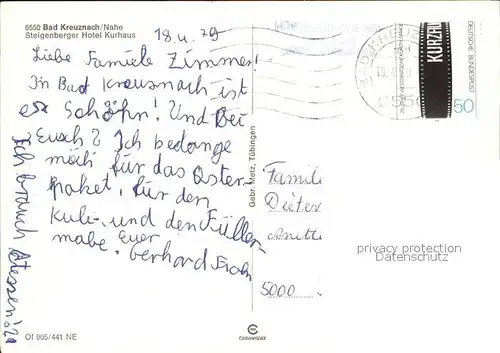 6550 Bad Kreuznach/Nahe
Steigenberger Hotel Kurhaus
18 4. 79
Liebe Famiele Zimmer!
In Bad Kreusnach ist
es Schöhn! Und bei
Eusch? Ich bedange
mich für das Oster-
paket, für den
Kuli und den Füller-
mabe. Euer
Gerhard
Ich brauch
Gebr. Metz, Tübingen
Famili
Dieter
5000
KURZFI
DEUTSCHE BUNDESPOST
50
privacy protection
Datenschutz
Of 905/441 NE